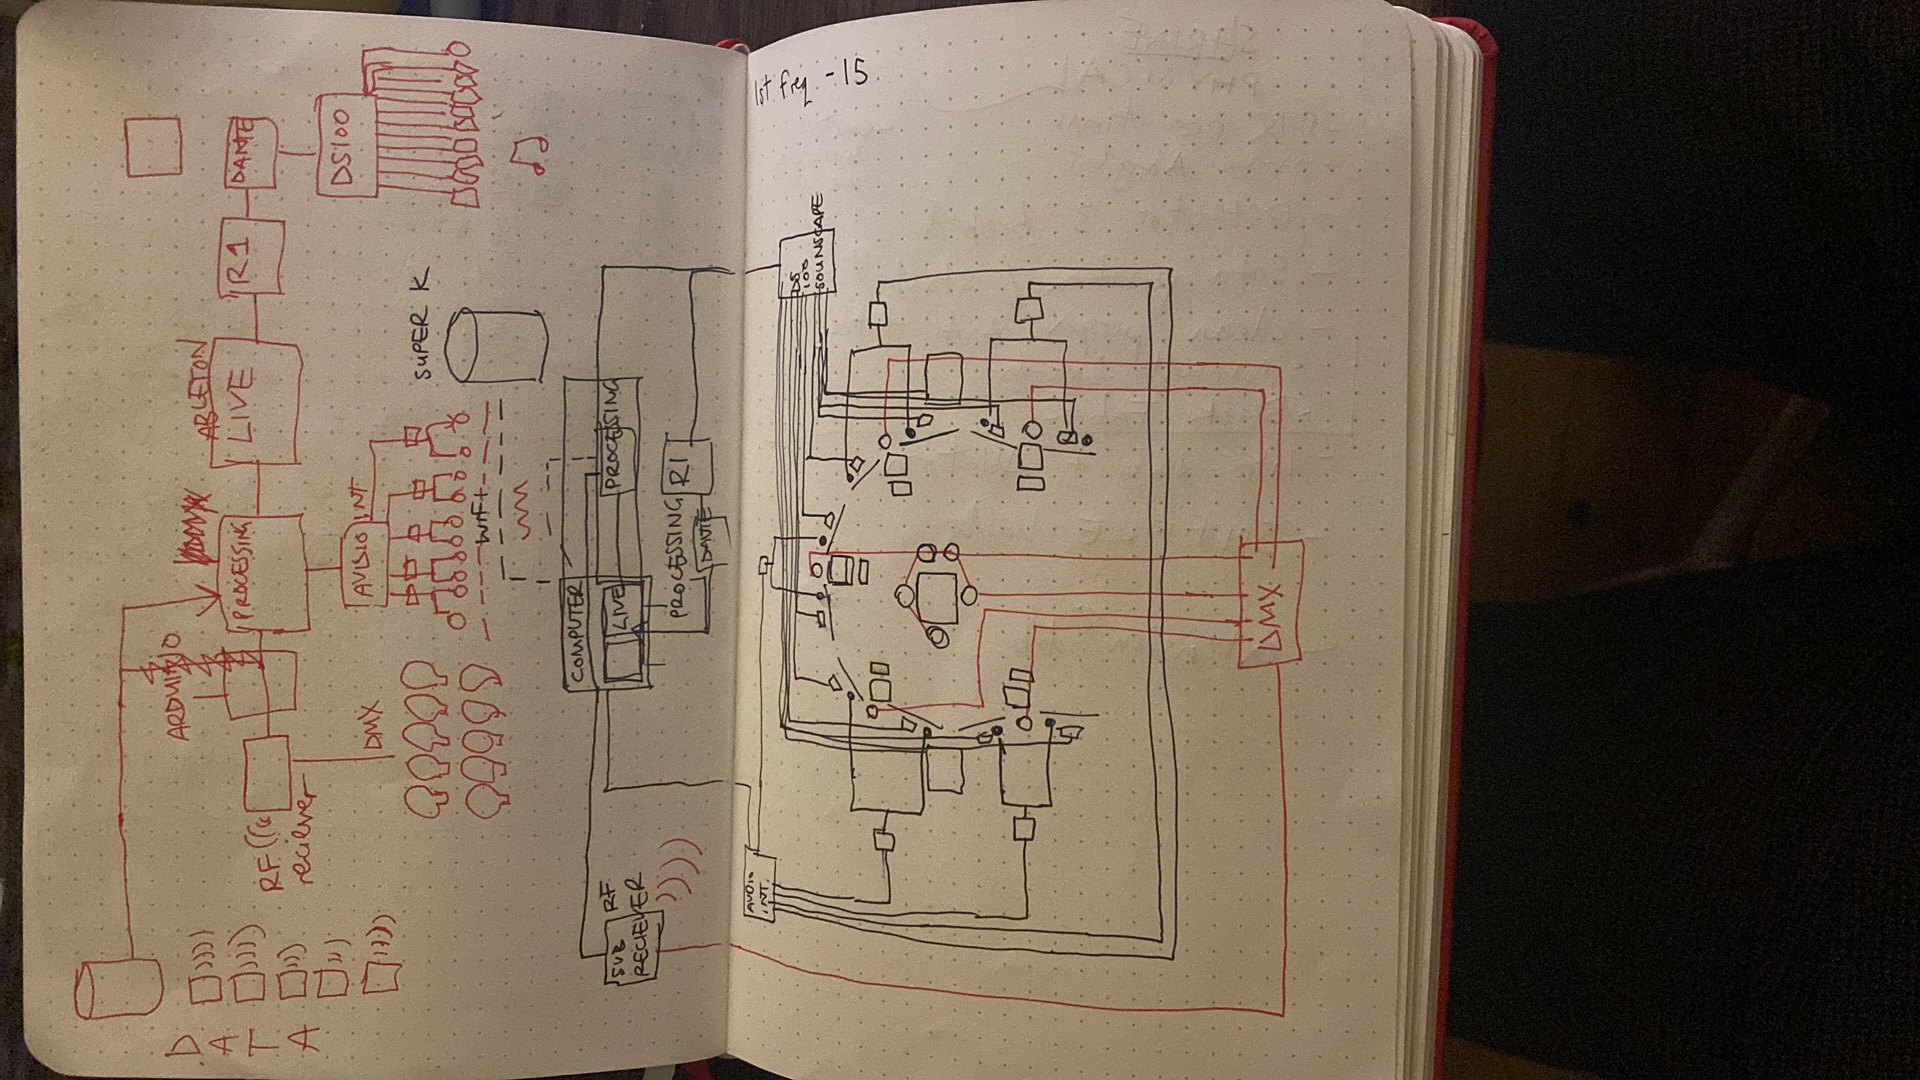 DATA
RF
reciever
ARDUINO
DMX
PROCESSING
ABLETON
LIVE
R1
DANTE
DS100
INT
WIFI
SUPER K
COMPUTER
LIVE
PROCESSING
PROCESSING
R1
DANTE
SUB RF
RECIEVER
1st freq - 15
DS
100
SOUNSCAPE
AUDIO
INT.
DMX